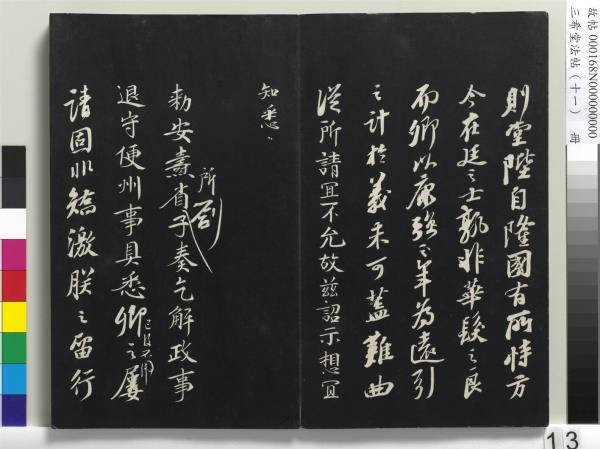 故帖 000168N000000000
三希堂法帖（十一） 冊
則堂陛自隆國有所恃方
今在廷之士孰非華髮之良
而卿以康強之年為遠引
之計於義未可蓋難曲
從所請宜不允故茲詔示想宜
知悉
敕安燾省所劄子奏乞解政事
退守便州事具悉卿之屢
請固非矯激朕之留行
13